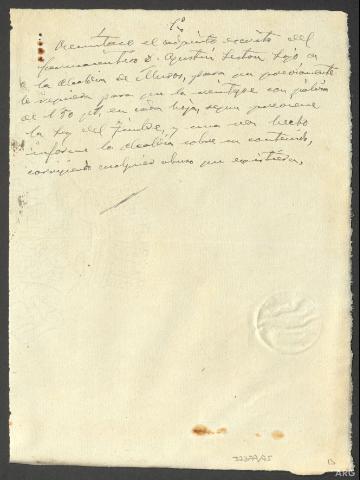 1º
Remítase el adjunto escrito del
farmacéutico D. Agustín
a la Alcaldía de para que previamente
le requiera para que la reintegre con póliza
de 1'50 pts, en cada hoja, segun previene
la Ley del Timbre, y una vez hecho
informe la Alcaldía sobre su contenido,
corrigiendo cualquier abuso que existiera.
13
ARG